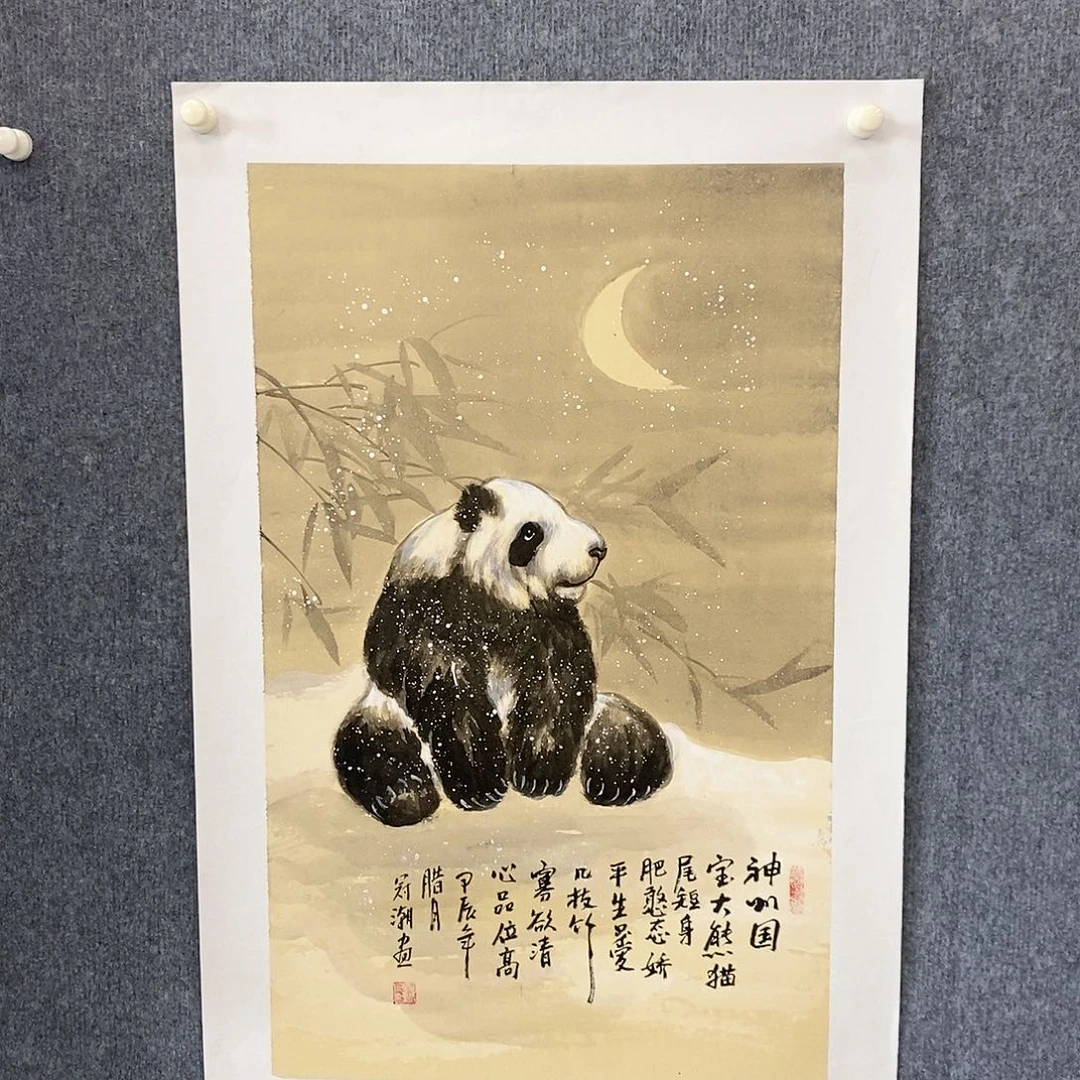 神州国
宝大熊猫
尾短身
肥憨态娇
平生只愛
几枝竹
寡欲清
心品位高
甲辰年
腊月
冠潮画